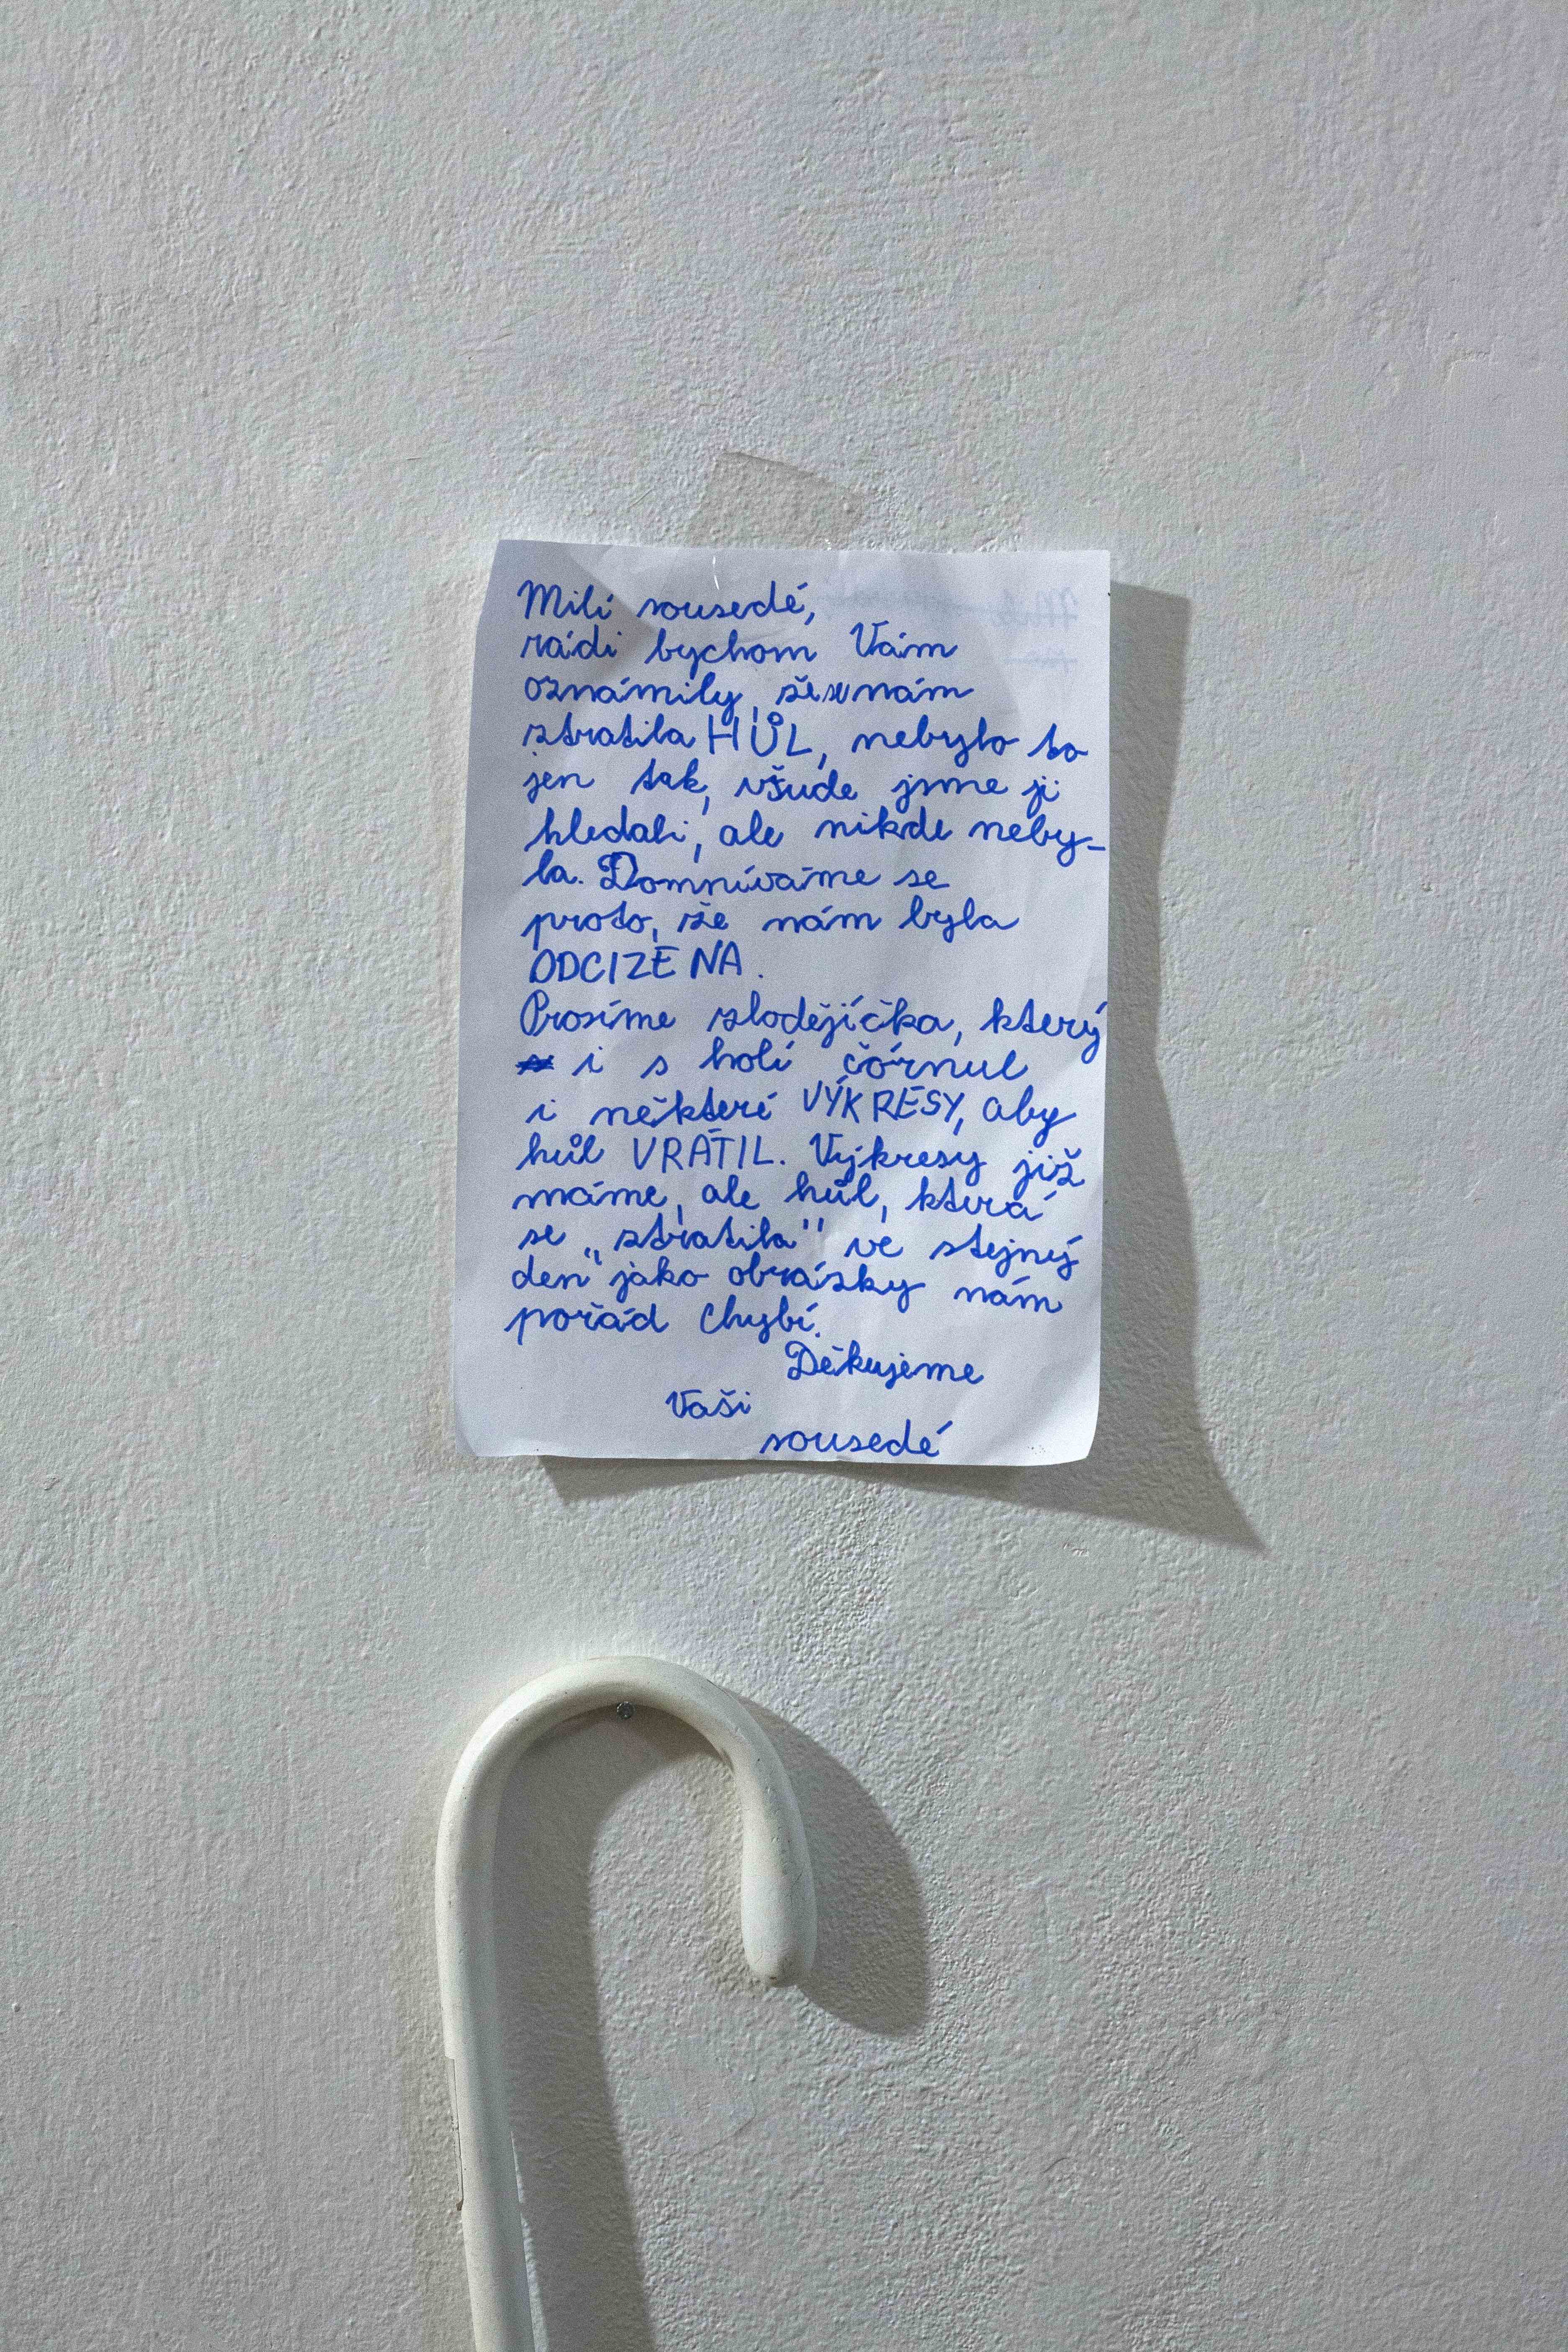 Milí sousedé,
rádi bychom Vám
oznámily, že se nám
ztratila HŮL, nebylo to
jen tak, všude jsme ji
hledali, ale nikde neby-
la. Domníváme se
proto, že nám byla
ODCIZENA.
Prosíme zlodějíčka, který
i s holí čórnul
i některé VÝKRESY, aby
hůl VRÁTIL. Výkresy již
máme, ale hůl, která
se „ztratila" ve stejný
den jako obrázky nám
pořád chybí.
Děkujeme
Vaši
sousedé